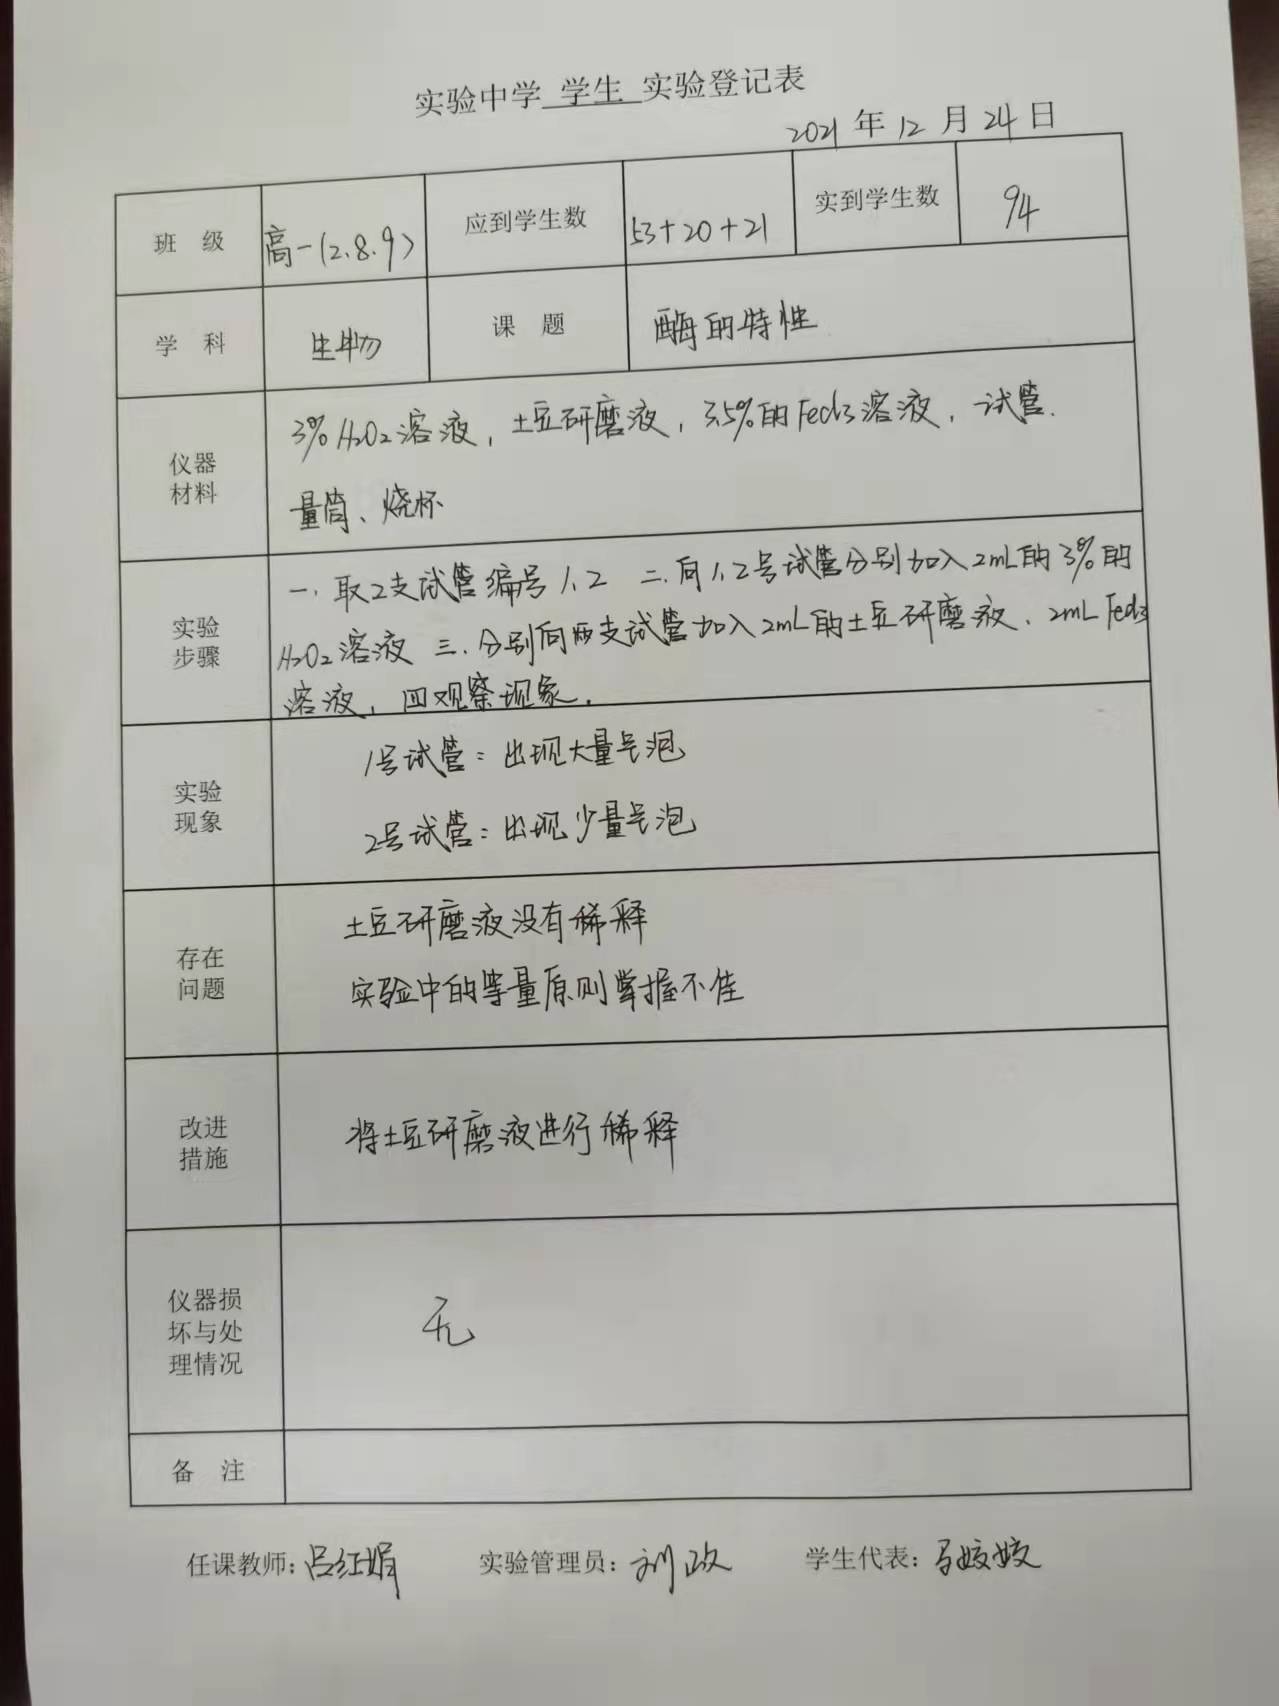 实验中学 学生 实验登记表
2021 年 12 月 24 日
班 级 高一(2.8.9) 应到学生数 53+20+21 实到学生数 94
学 科 生物 课 题 酶的特性
仪器材料 3% H2O2溶液，土豆研磨液，3.5%的Fecl3溶液，试管.
量筒、烧杯
实验步骤 一.取2支试管编号1.2 二.向1.2号试管分别加入2mL的3%的
H2O2溶液 三.分别向两支试管加入2mL的土豆研磨液、2mL Fecl3
溶液，四观察现象.
实验现象 1号试管：出现大量气泡
2号试管：出现少量气泡
存在问题 土豆研磨液没有稀释
实验中的等量原则掌握不佳
改进措施 将土豆研磨液进行稀释
仪器损坏与处理情况 无
备 注
任课教师：吕红娟 实验管理员：刘政 学生代表：马姣姣